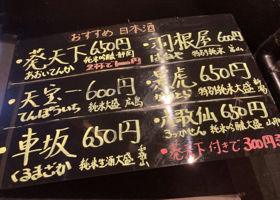 おすすめ 日本酒
・蒼天下 650円
あおいてんか 純米吟醸・静岡
・天宝一 600円
てんぽういち 純米大盛 広島
・車坂 650円
くるまざか 純米生酒大盛 和歌山
・羽根屋 600円
はねや 特別純米 富山
650円
特別純米大盛
六歌仙 650円
ろっかせん 純米吟醸大盛 山形
天下付きで300円